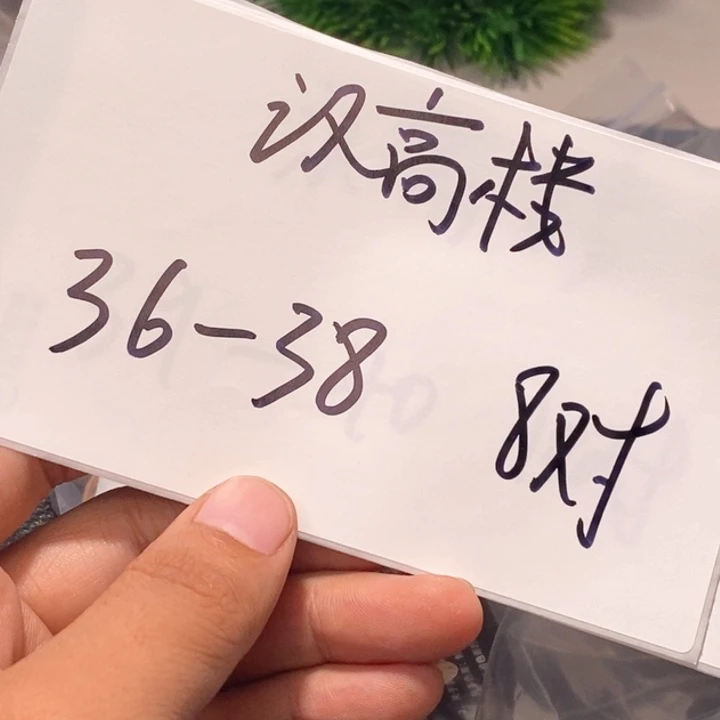 汉高楼
36-38
8对